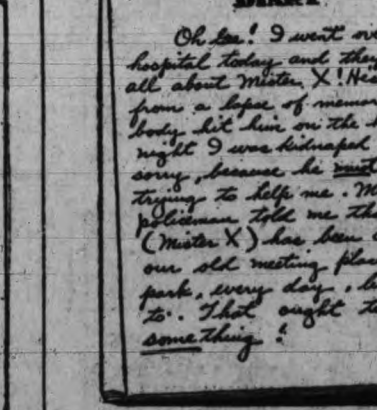 Oh Gee! I went ove
hospital today and they
all about Mister X! He's
from a lapse of memor
body hit him on the h
night I was kidnaped
sorry, because he must
trying to help me. M
policeman told me tha
(Mister X) has been
our old meeting plac
park, every day, b
to. That ought t
something!